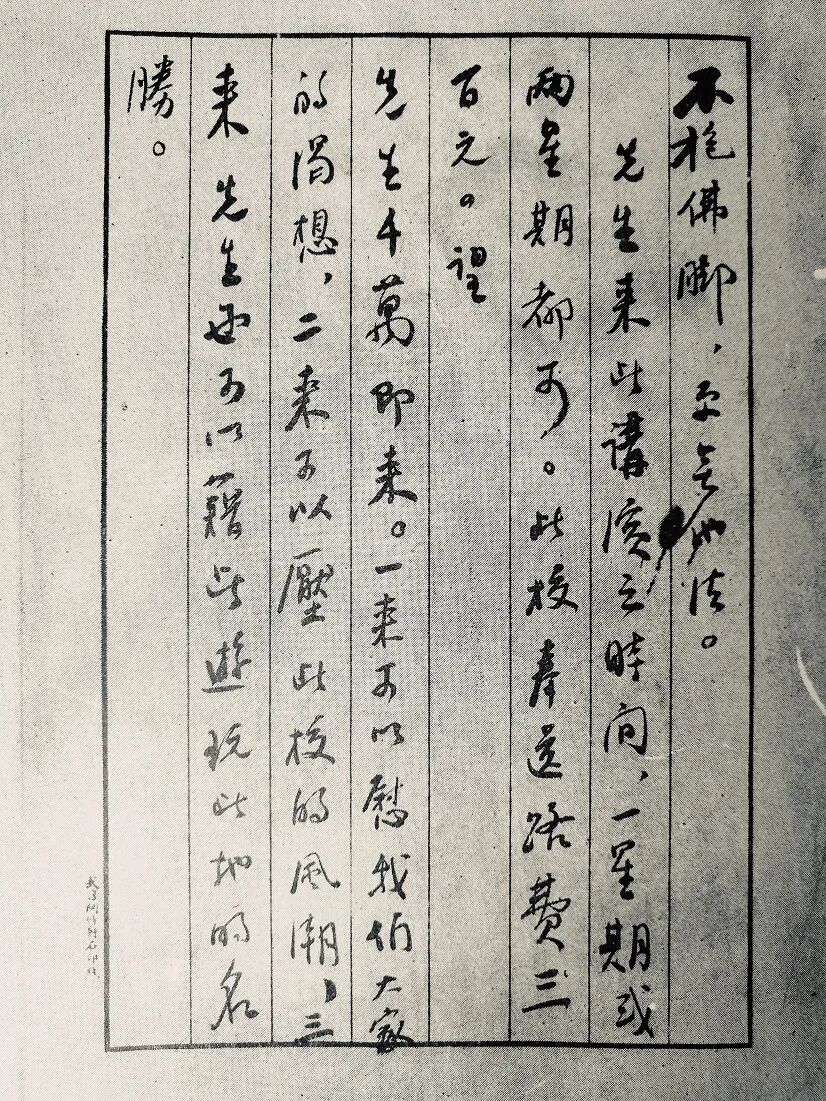 不抱佛脚，無他法。
先生来此講演之時间，一星期或
兩星期都可。此校奉送路費三
百元。望
先生千萬即来。一来可以慰我们大家
的渴想，二来可以壓此校的風潮，三
来 先生还可以籍此遊玩此地的名
勝。